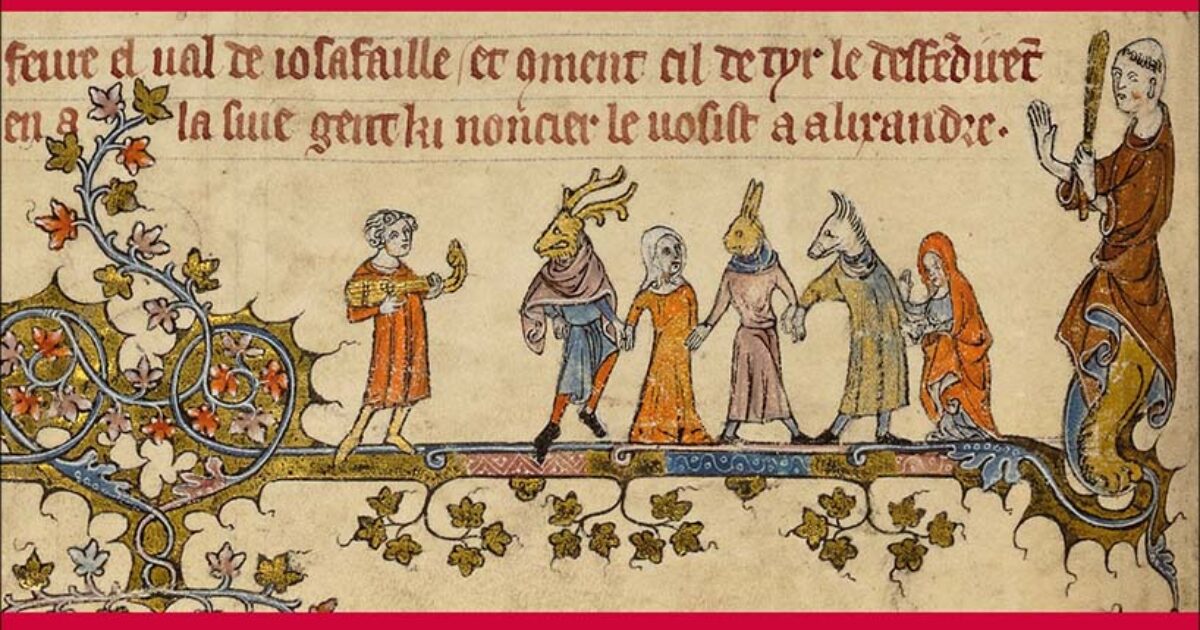 feure el ual de iosafaille / et qment cil de tyr le desfēdirēt
en a la siue gent ki noncier le uosist a alixandre.